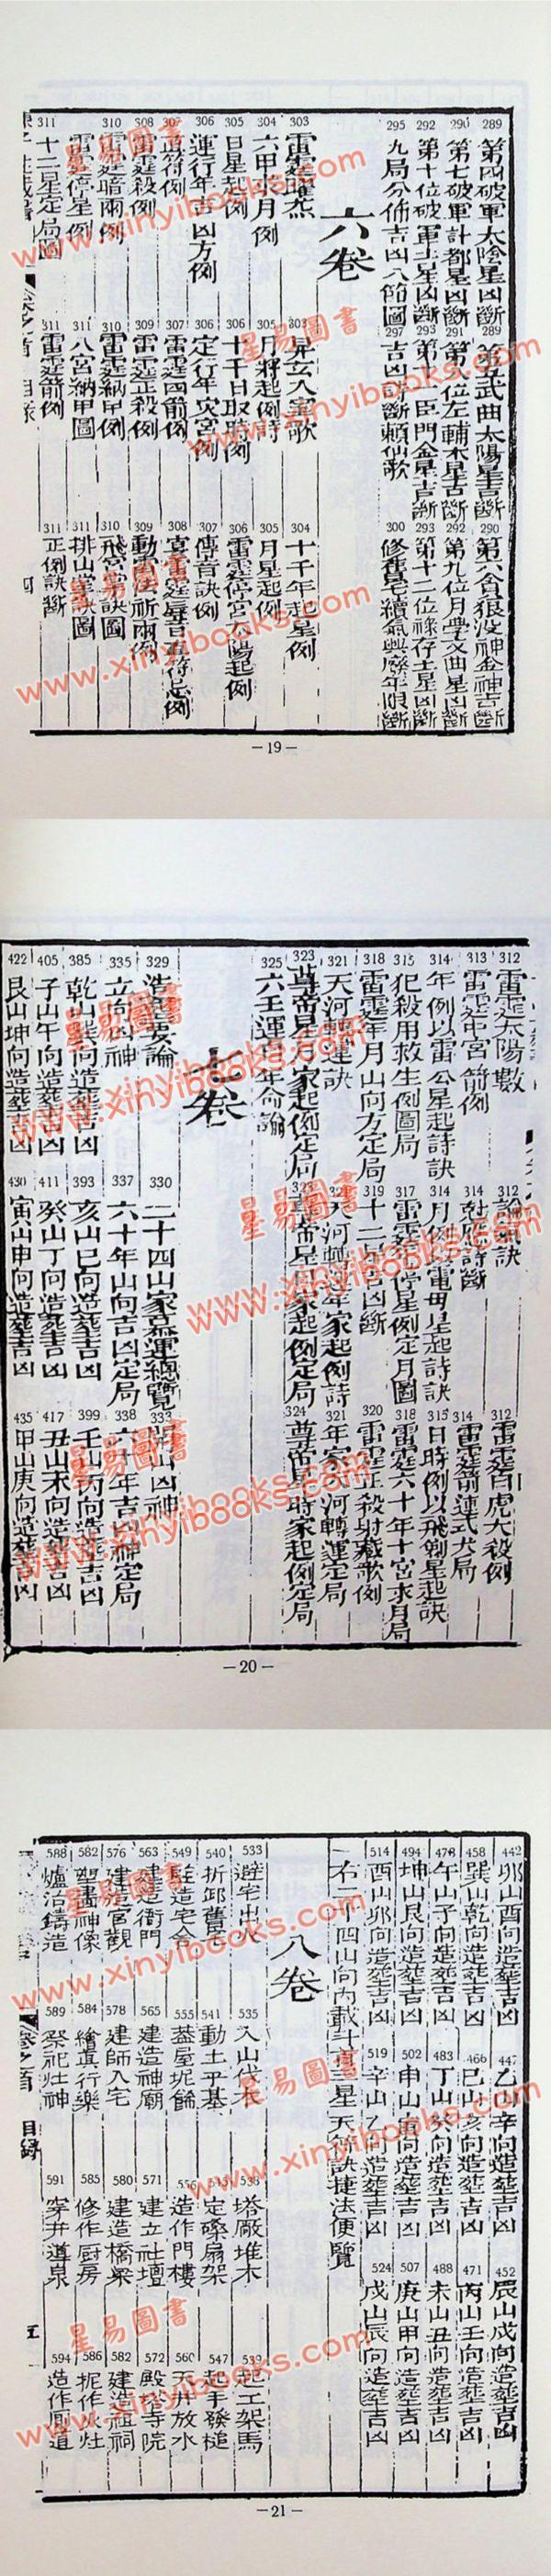 289 第四破軍太陰星凶斷 289 第五武曲太陽星吉斷 290 第六貪狼沒神金神吉斷
290 第七破軍計都星凶斷 291 第八位左輔木星吉斷 292 第九位月孛文曲星凶斷
292 第十位破軍土星凶斷 293 第十一巨門金星吉斷 293 第十二位祿存土星凶斷
295 九局分佈吉凶八節圖 297 吉凶訣斷賴仙歌 300 修舊宅續氣興廢年限斷
六卷
303 雷霆 303 見玄入室歌 304 十千年起星例
304 六甲 月例 305 月將起例詩 305 月星起例
305 日星起例 306 十干日取時例 306 雷霆停宮太陽起例
306 運行年吉凶方例 306 定行年灾宮例 307 傳音訣例
307 直符例 307 雷霆四箭例 308 直符忌例
308 雷霆殺例 309 雷霆正殺例 309 祈雨例
310 雷霆暗雨例 310 雷霆納甲例 310 飛宮 訣圖
311 雷霆停星例 311 八宮納甲圖 311 排山掌訣圖
311 十二宮星定局圖 311 雷霆箭例 311 正例訣斷
卷之首 目錄 四
—19—
312 雷霆太陽數 312 訣 312 雷霆白虎大殺例
313 雷霆中宮箭例 314 尅應詩斷 314 雷霆箭連式犬局
314 年例以雷公星起詩訣 314 月例 電母星起詩訣 315 日時例以飛 星起訣
315 犯殺用救生例圖局 317 雷霆 停星例定月圖 318 雷霆六十年十宮求月局
318 雷霆年月山向方定局 319 十二 吉凶斷 320 雷霆正殺 歌例
321 天河轉運訣 年家起例詩 321 年家 河轉運定局
323 尊帝星月家起例定局 323 尊帝星 家起例定局 324 尊帝星時家起例定局
325 六壬運 年命論
七卷
329 造 要論 330 二十四山家墓運總覽 333 開山凶神
335 立向凶神 337 六十年山向吉凶定局 338 六十年吉凶神定局
385 乾山巽向造塟吉凶 393 亥山巳向造塟吉凶 399 壬山丙向造塟吉凶
405 子山午向造塟吉凶 411 癸山丁向造塟吉凶 417 丑山未向造塟吉凶
422 艮山坤向造塟吉凶 430 寅山申向造塟吉凶 435 甲山庚向造塟吉凶
—20—
442 卯山酉向造塟吉凶 447 乙山辛向造塟吉凶 452 辰山戌向造塟吉凶
458 巽山乾向造塟吉凶 466 巳山亥向造塟吉凶 471 丙山壬向造塟吉凶
478 午山子向造塟吉凶 483 丁山癸向造塟吉凶 488 未山丑向造塟吉凶
494 坤山艮向造塟吉凶 502 申山寅向造塟吉凶 507 庚山甲向造塟吉凶
514 酉山卯向造塟吉凶 519 辛山乙向造塟吉凶 524 戌山辰向造塟吉凶
右二十四山向內載斗首 星天 訣捷法便覽
八卷
533 避宅出火 535 入山伐木 538 塔廠堆木 539 起工架馬
540 折卸舊 541 動土平基 543 定磉扇架 547 起手發槌
549 豎造宅舍 555 蓋屋坭餙 556 造作門樓 560 天井放水
563 建造衙門 565 建造神廟 571 建立社壇 572 殿 寺院
576 建造宮觀 578 建師入宅 580 建造橋梁 582 建造祖祠
582 塑畫神像 584 繪真行樂 585 修作厨房 586 坭作 灶
588 爐冶鑄造 589 祭祀灶神 591 穿井導泉 594 造作圊道
卷之首 目錄 五
—21—
星易圖書
www.xinyibooks.com
星易圖書
www.xinyibooks.com
星易圖書
www.xinyibooks.com
星易圖書
www.xinyibooks.com
星易圖書
www.xinyibooks.com
星易圖書
www.xinyibooks.com
星易圖書
www.xinyibooks.com
星易圖書
www.xinyibooks.com
星易圖書
www.xinyibooks.com